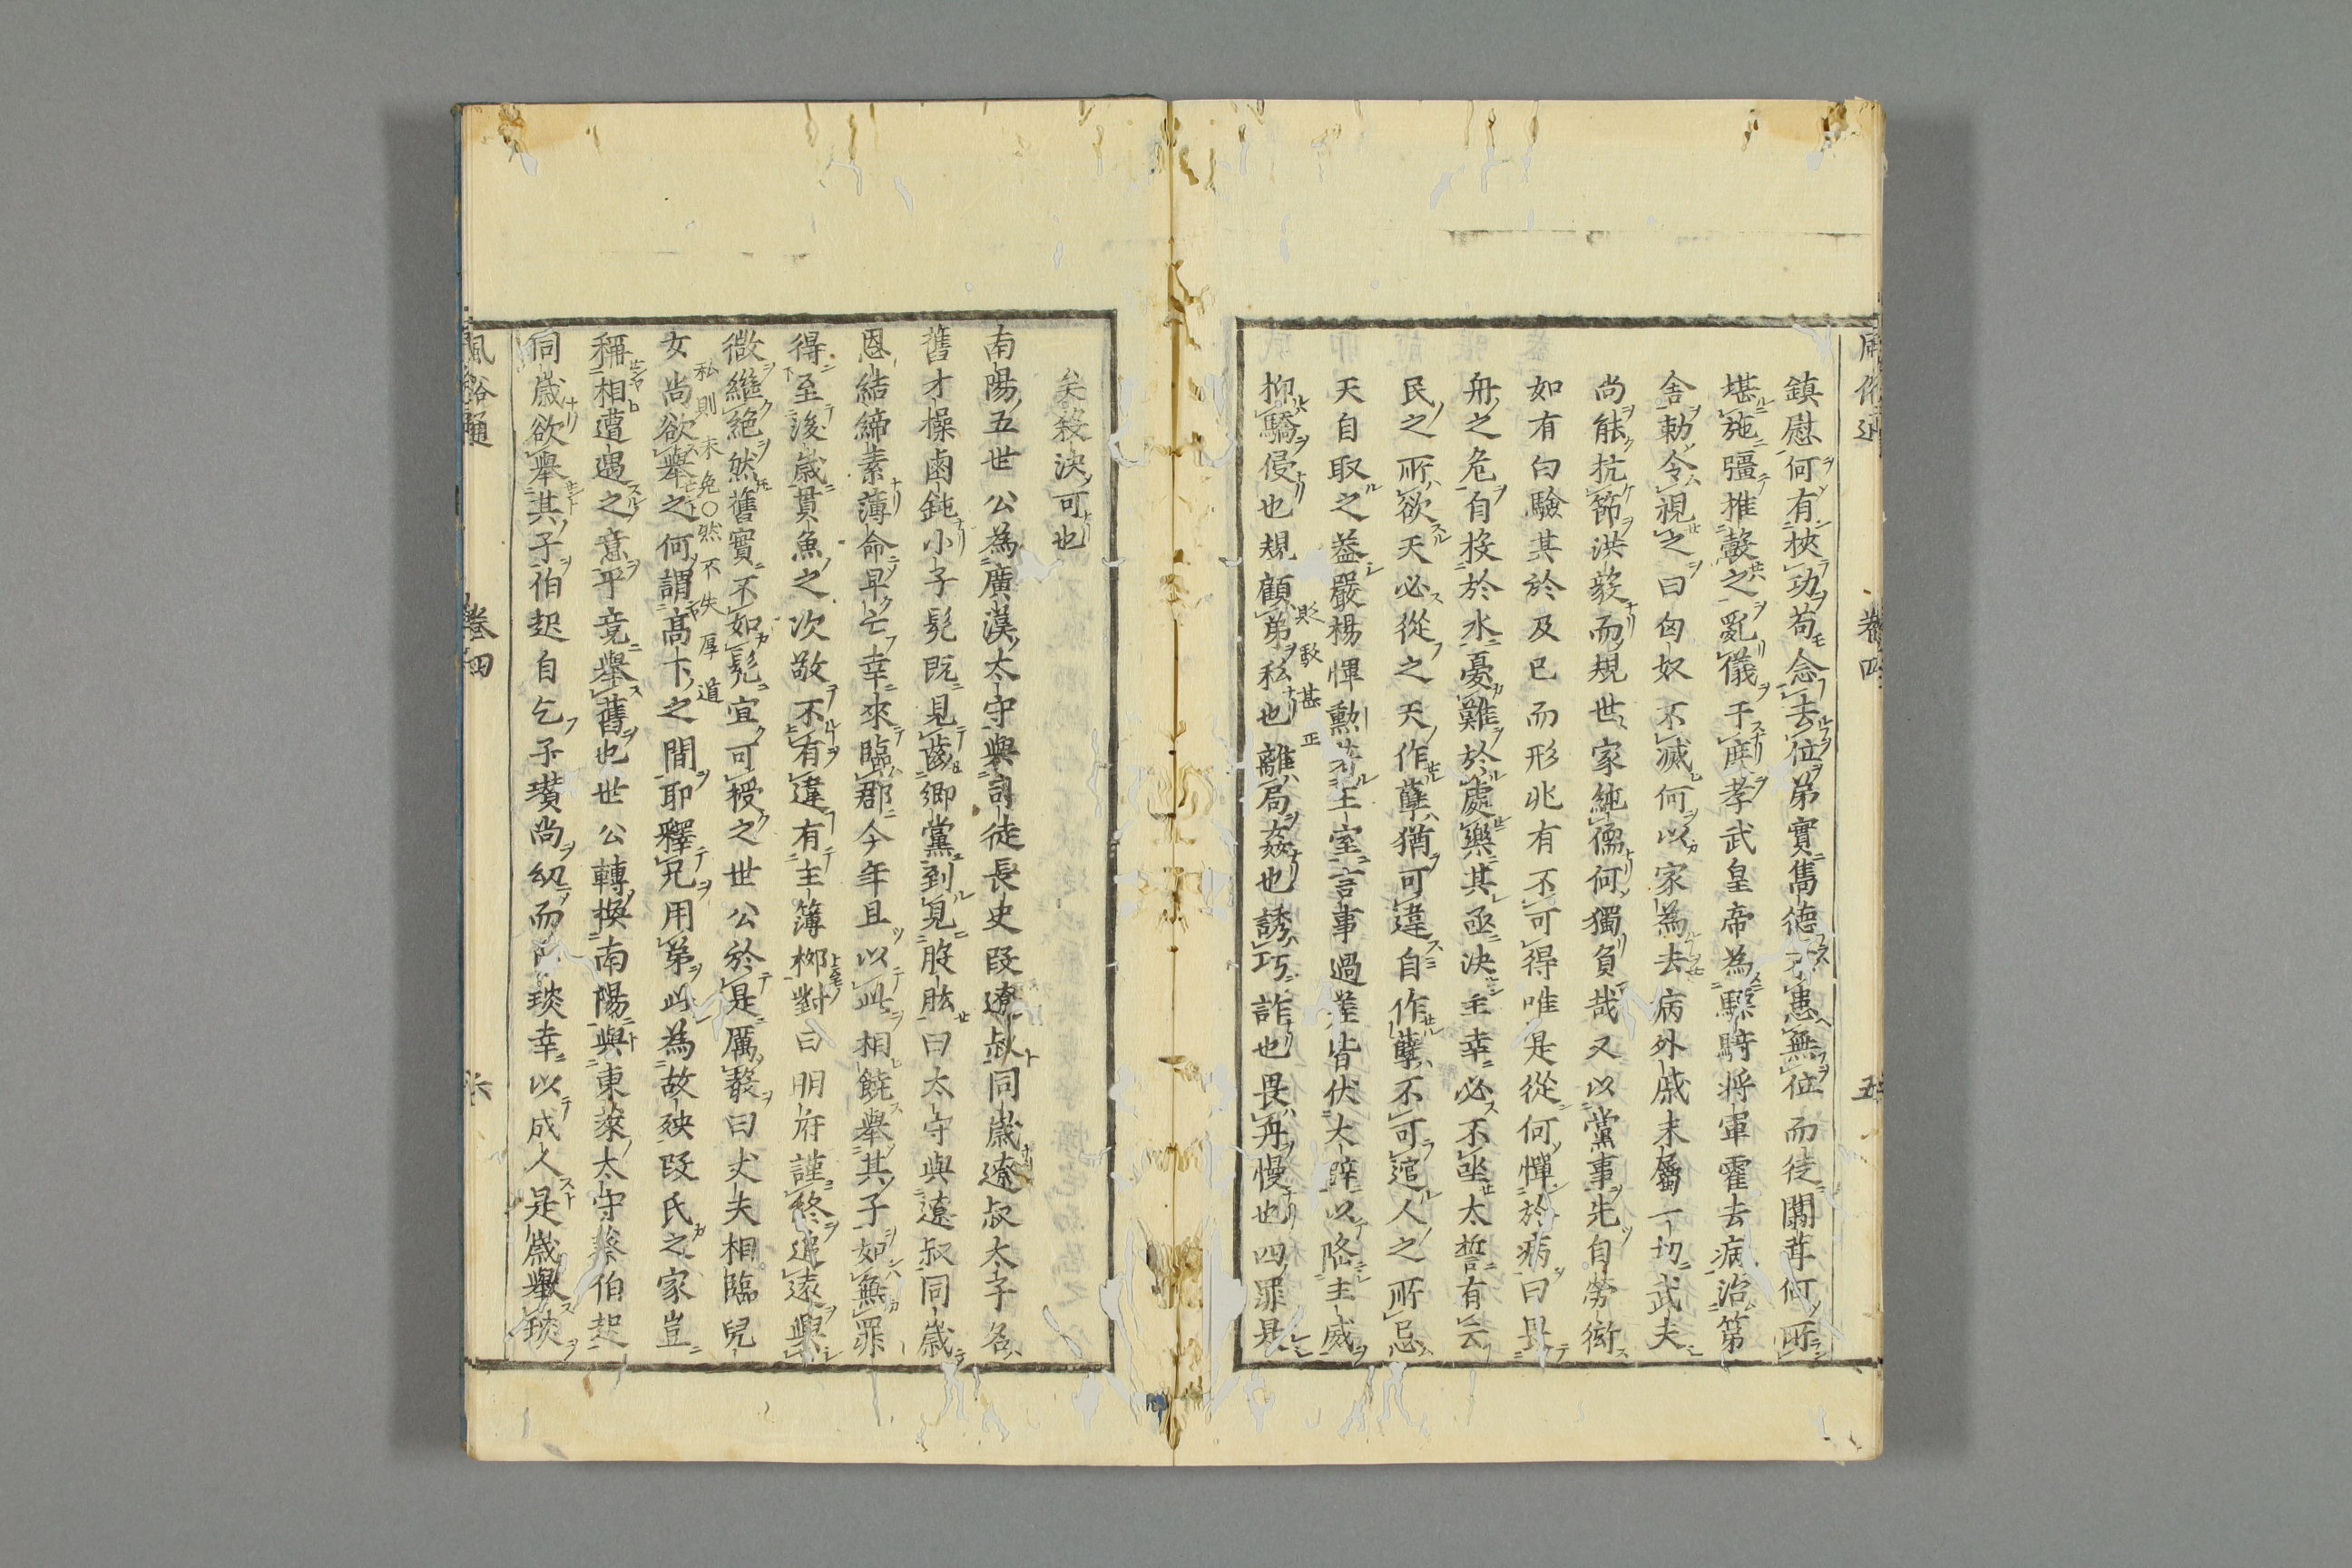 卷四
五
鎮慰何有挾功苟念去位弟實雋德不患無位而徒闒茸何所
堪施彊推轂之亂儀干度孝武皇帝為驃騎將軍霍去病治第
舍勅令視之曰匈奴不滅何以家為去病外戚末屬一切武夫
尚能抗節洪毅而規世家純儒何獨負哉又以黨事先自勞衒
如有白驗其於及已而形兆有不可得唯是從何憚於病曰畏
舟之危自投於水憂難於處樂其亟決主幸必不坐太誓有云
民之所欲天必從之天作孽猶可違自作孽不可逭人之所忌
天自取之益嚴楊惲勳著王室言事過差皆伏大辟以隆主威
抑驕侵也規顧弟私也離局姦也誘巧詐也畏舟慢也四罪是
貶 致 甚 正
矣殺決可也
南陽五世公為廣漢太守與司徒長史段遼叔同歲遼叔太子名
舊才操鹵鈍小子髡既見齒鄉黨到見股肱曰太守與遼叔同歲
恩結締素薄命早亡幸來臨郡今年且以此相饒舉其子如無罪
得至後歲貫魚之次敬不有違有主簿柳對曰明府謹終追遠興
微繼絕然舊實不如髡宜可授之世公於是厲聲曰丈夫相臨兒
女尚欲舉之何謂高下之間耶釋兄用弟此為故殃段氏之家豈
私則未免○然不失厚道
稱相遭遇之意乎竟舉舊也世公轉換南陽與東萊太守蔡伯起
同歲欲舉其子伯起自乞子瓚尚幼而琰幸以成人是歲舉琰
風俗通
卷四
六